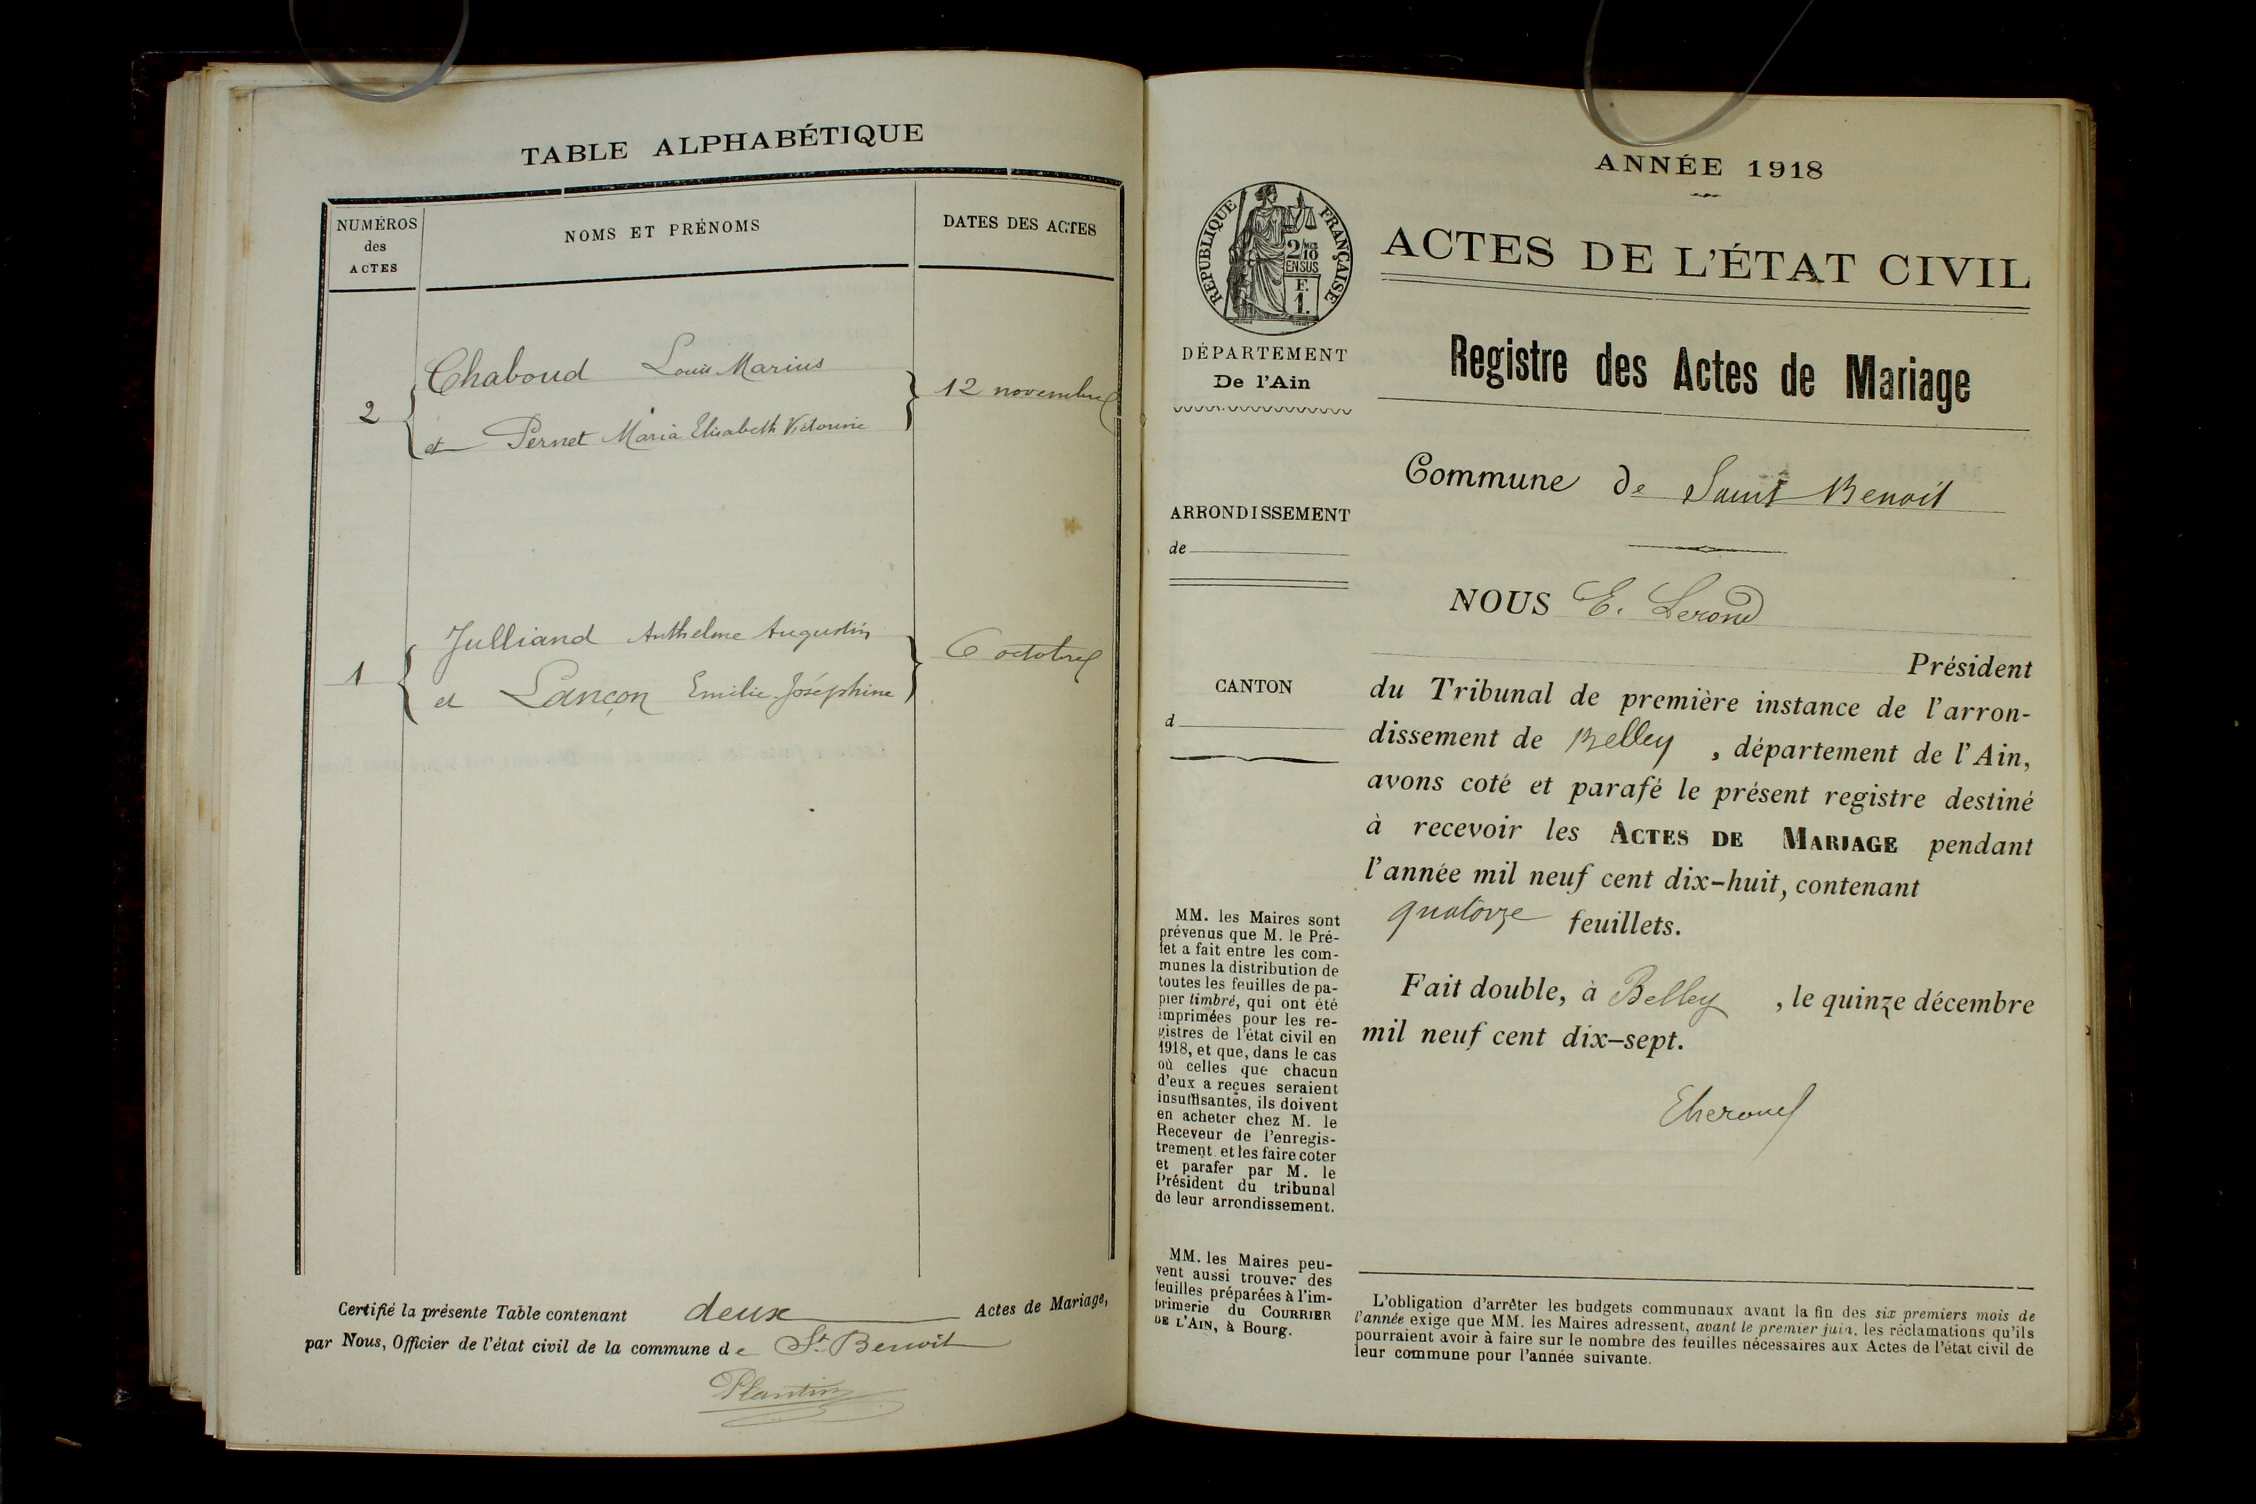 TABLE ALPHABÉTIQUE
NUMÉROS
des
ACTES
NOMS ET PRÉNOMS
DATES DES ACTES
2
Chaboud Louis Marius
et Pernet Maria Elisabeth Victorine
12 novembre
1
Julliand Anthelme Augustin
et Lançon Emilie Joséphine
6 octobre
Certifié la présente Table contenant deux Actes de Mariage,
par Nous, Officier de l'état civil de la commune de St. Benoit
Plantin
ANNÉE 1918
RÉPUBLIQUE FRANÇAISE
2/10
EN SUS
F.
1.
DÉPARTEMENT
De l'Ain
ARRONDISSEMENT
de
CANTON
d
MM. les Maires sont
prévenus que M. le Pré-
fet a fait entre les com-
munes la distribution de
toutes les feuilles de pa-
pier timbré, qui ont été
imprimées pour les re-
gistres de l'état civil en
1918, et que, dans le cas
où celles que chacun
d'eux a reçues seraient
insuffisantes, ils doivent
en acheter chez M. le
Receveur de l'enregis-
trement et les faire coter
et parafer par M. le
Président du tribunal
de leur arrondissement.
MM. les Maires peu-
vent aussi trouver des
feuilles préparées à l'im-
primerie du COURRIER
DE L'AIN, à Bourg.
ACTES DE L'ÉTAT CIVIL
Registre des Actes de Mariage
Commune de Saint Benoit
NOUS E. Lerond
Président
du Tribunal de première instance de l'arron-
dissement de Belley, département de l'Ain,
avons coté et parafé le présent registre destiné
à recevoir les ACTES DE MARIAGE pendant
l'année mil neuf cent dix-huit, contenant
quatorze feuillets.
Fait double, à Belley, le quinze décembre
mil neuf cent dix-sept.
L'obligation d'arrêter les budgets communaux avant la fin des six premiers mois de
l'année exige que MM. les Maires adressent, avant le premier juin, les réclamations qu'ils
pourraient avoir à faire sur le nombre des feuilles nécessaires aux Actes de l'état civil de
leur commune pour l'année suivante.